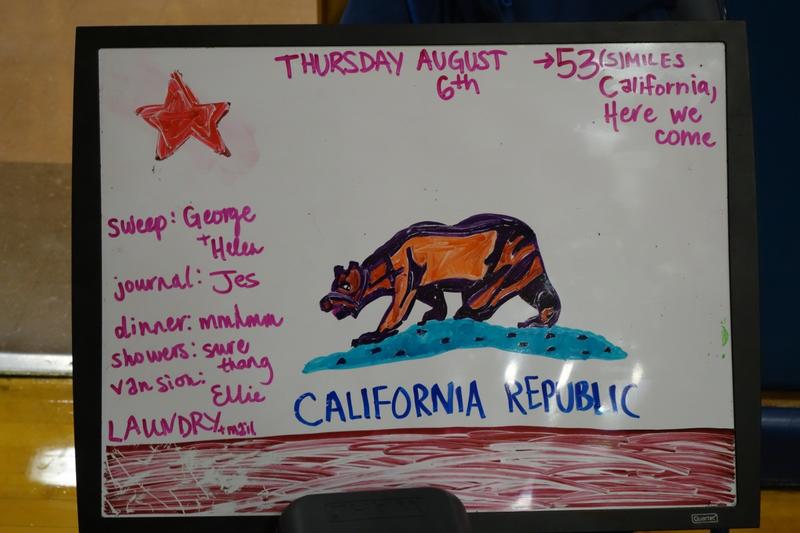 THURSDAY AUGUST
6th
→53(S)MILES
California,
Here we
come
sweep: George
+Helen
journal: Jes
dinner: mmhmm
showers: sure
thang
vansion:
Ellie
LAUNDRY +mail
CALIFORNIA REPUBLIC
Quartet